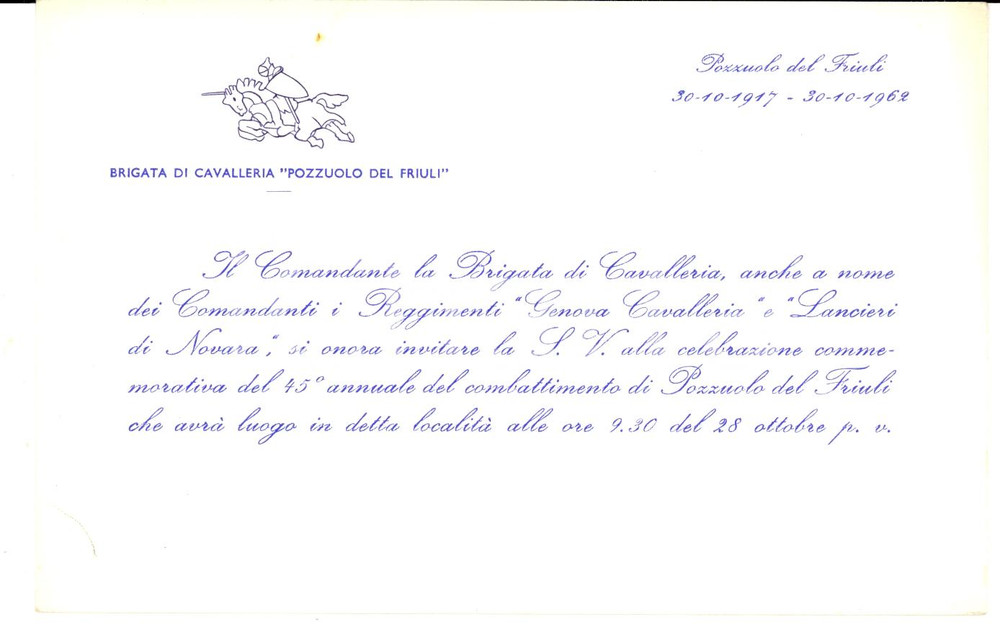 Pozzuolo del Friuli
30-10-1917 - 30-10-1962
BRIGATA DI CAVALLERIA "POZZUOLO DEL FRIULI"
Il Comandante la Brigata di Cavalleria, anche a nome
dei Comandanti i Reggimenti "Genova Cavalleria" e "Lancieri
di Novara", si onora invitare la S. V. alla celebrazione comme-
morativa del 45° annuale del combattimento di Pozzuolo del Friuli
che avrà luogo in detta località alle ore 9.30 del 28 ottobre p. v.